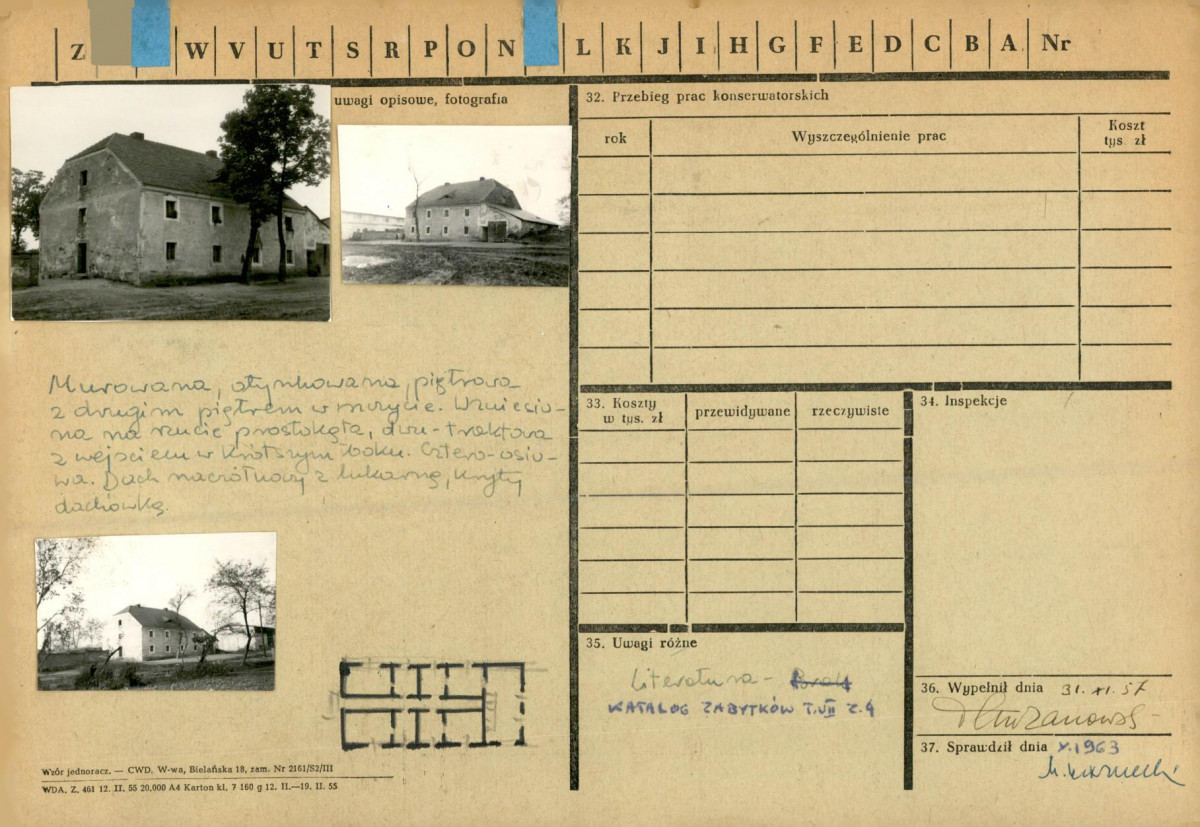 Z W V U T S R P O N L K J I H G F E D C B A Nr
uwagi opisowe, fotografia
Murowana, otynkowana, piętrowa
z drugim piętrem w szczycie. Wzniesio-
na na rzucie prostokąta, dwu-traktowa
z wejściem w krótszym boku. Cztero-osio-
wa. Dach naczółkowy z lukarną, kryty
dachówką.
Wzór jednoracz. — CWD. W-wa, Bielańska 18, zam. Nr 2161/S2/III
WDA. Z. 461 12. II. 55 20.000 A4 Karton kl. 7 160 g 12. II.—19. II. 55
32. Przebieg prac konserwatorskich
rok Wyszczególnienie prac Koszt
tys. zł
33. Koszty
w tys. zł
przewidywane rzeczywiste
34. Inspekcje
35. Uwagi różne
Literatura -
KATALOG ZABYTKÓW T. VII Z. 4
36. Wypełnił dnia 31. XI. 57
37. Sprawdził dnia X. 1963